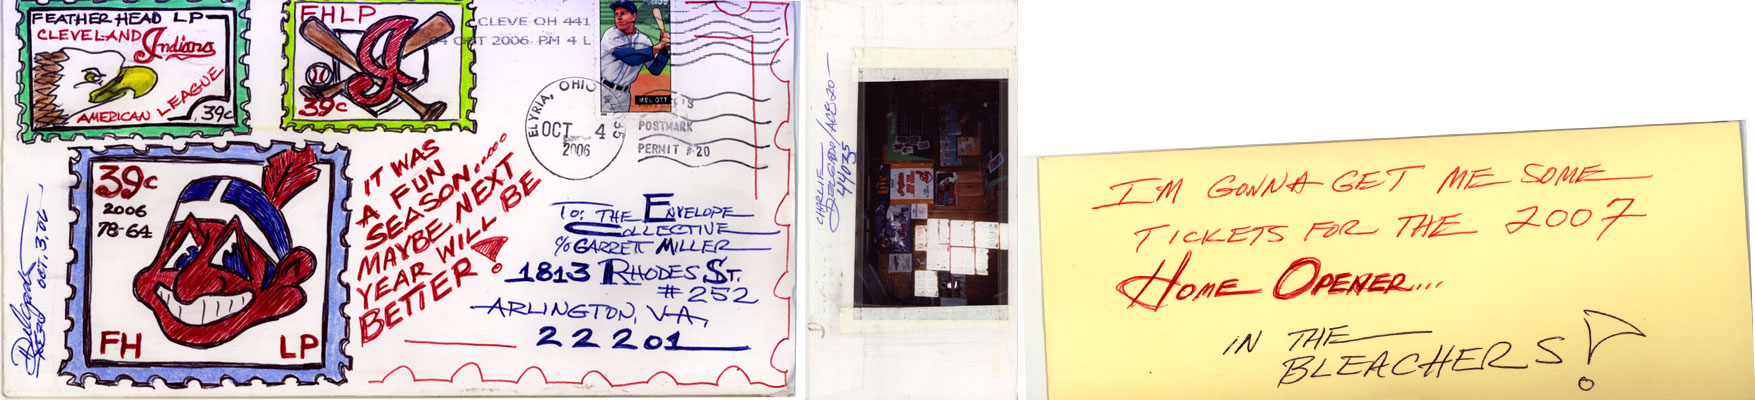 FEATHER HEAD LP
CLEVELAND
Indians
AMERICAN LEAGUE
39c
FHLP
I
39c
CLEVE OH 441
OCT 2006 PM 4 L
MEL OTT
ELYRIA, OHIO
OCT 4
2006
POSTMARK
PERMIT # 20
39c
2006
78-64
FH LP
Delgado
OCT, 3, 06
IT WAS
A FUN
SEASON.....
MAYBE NEXT
YEAR WILL BE
BETTER!
TO: THE ENVELOPE
COLLECTIVE
c/o GARRETT MILLER
1813 RHODES ST.
# 252
ARLINGTON, VA,
22201
CHARLIE
DELGADO
44035
I'M GONNA GET ME SOME
TICKETS FOR THE 2007
HOME OPENER...
IN THE
BLEACHERS!